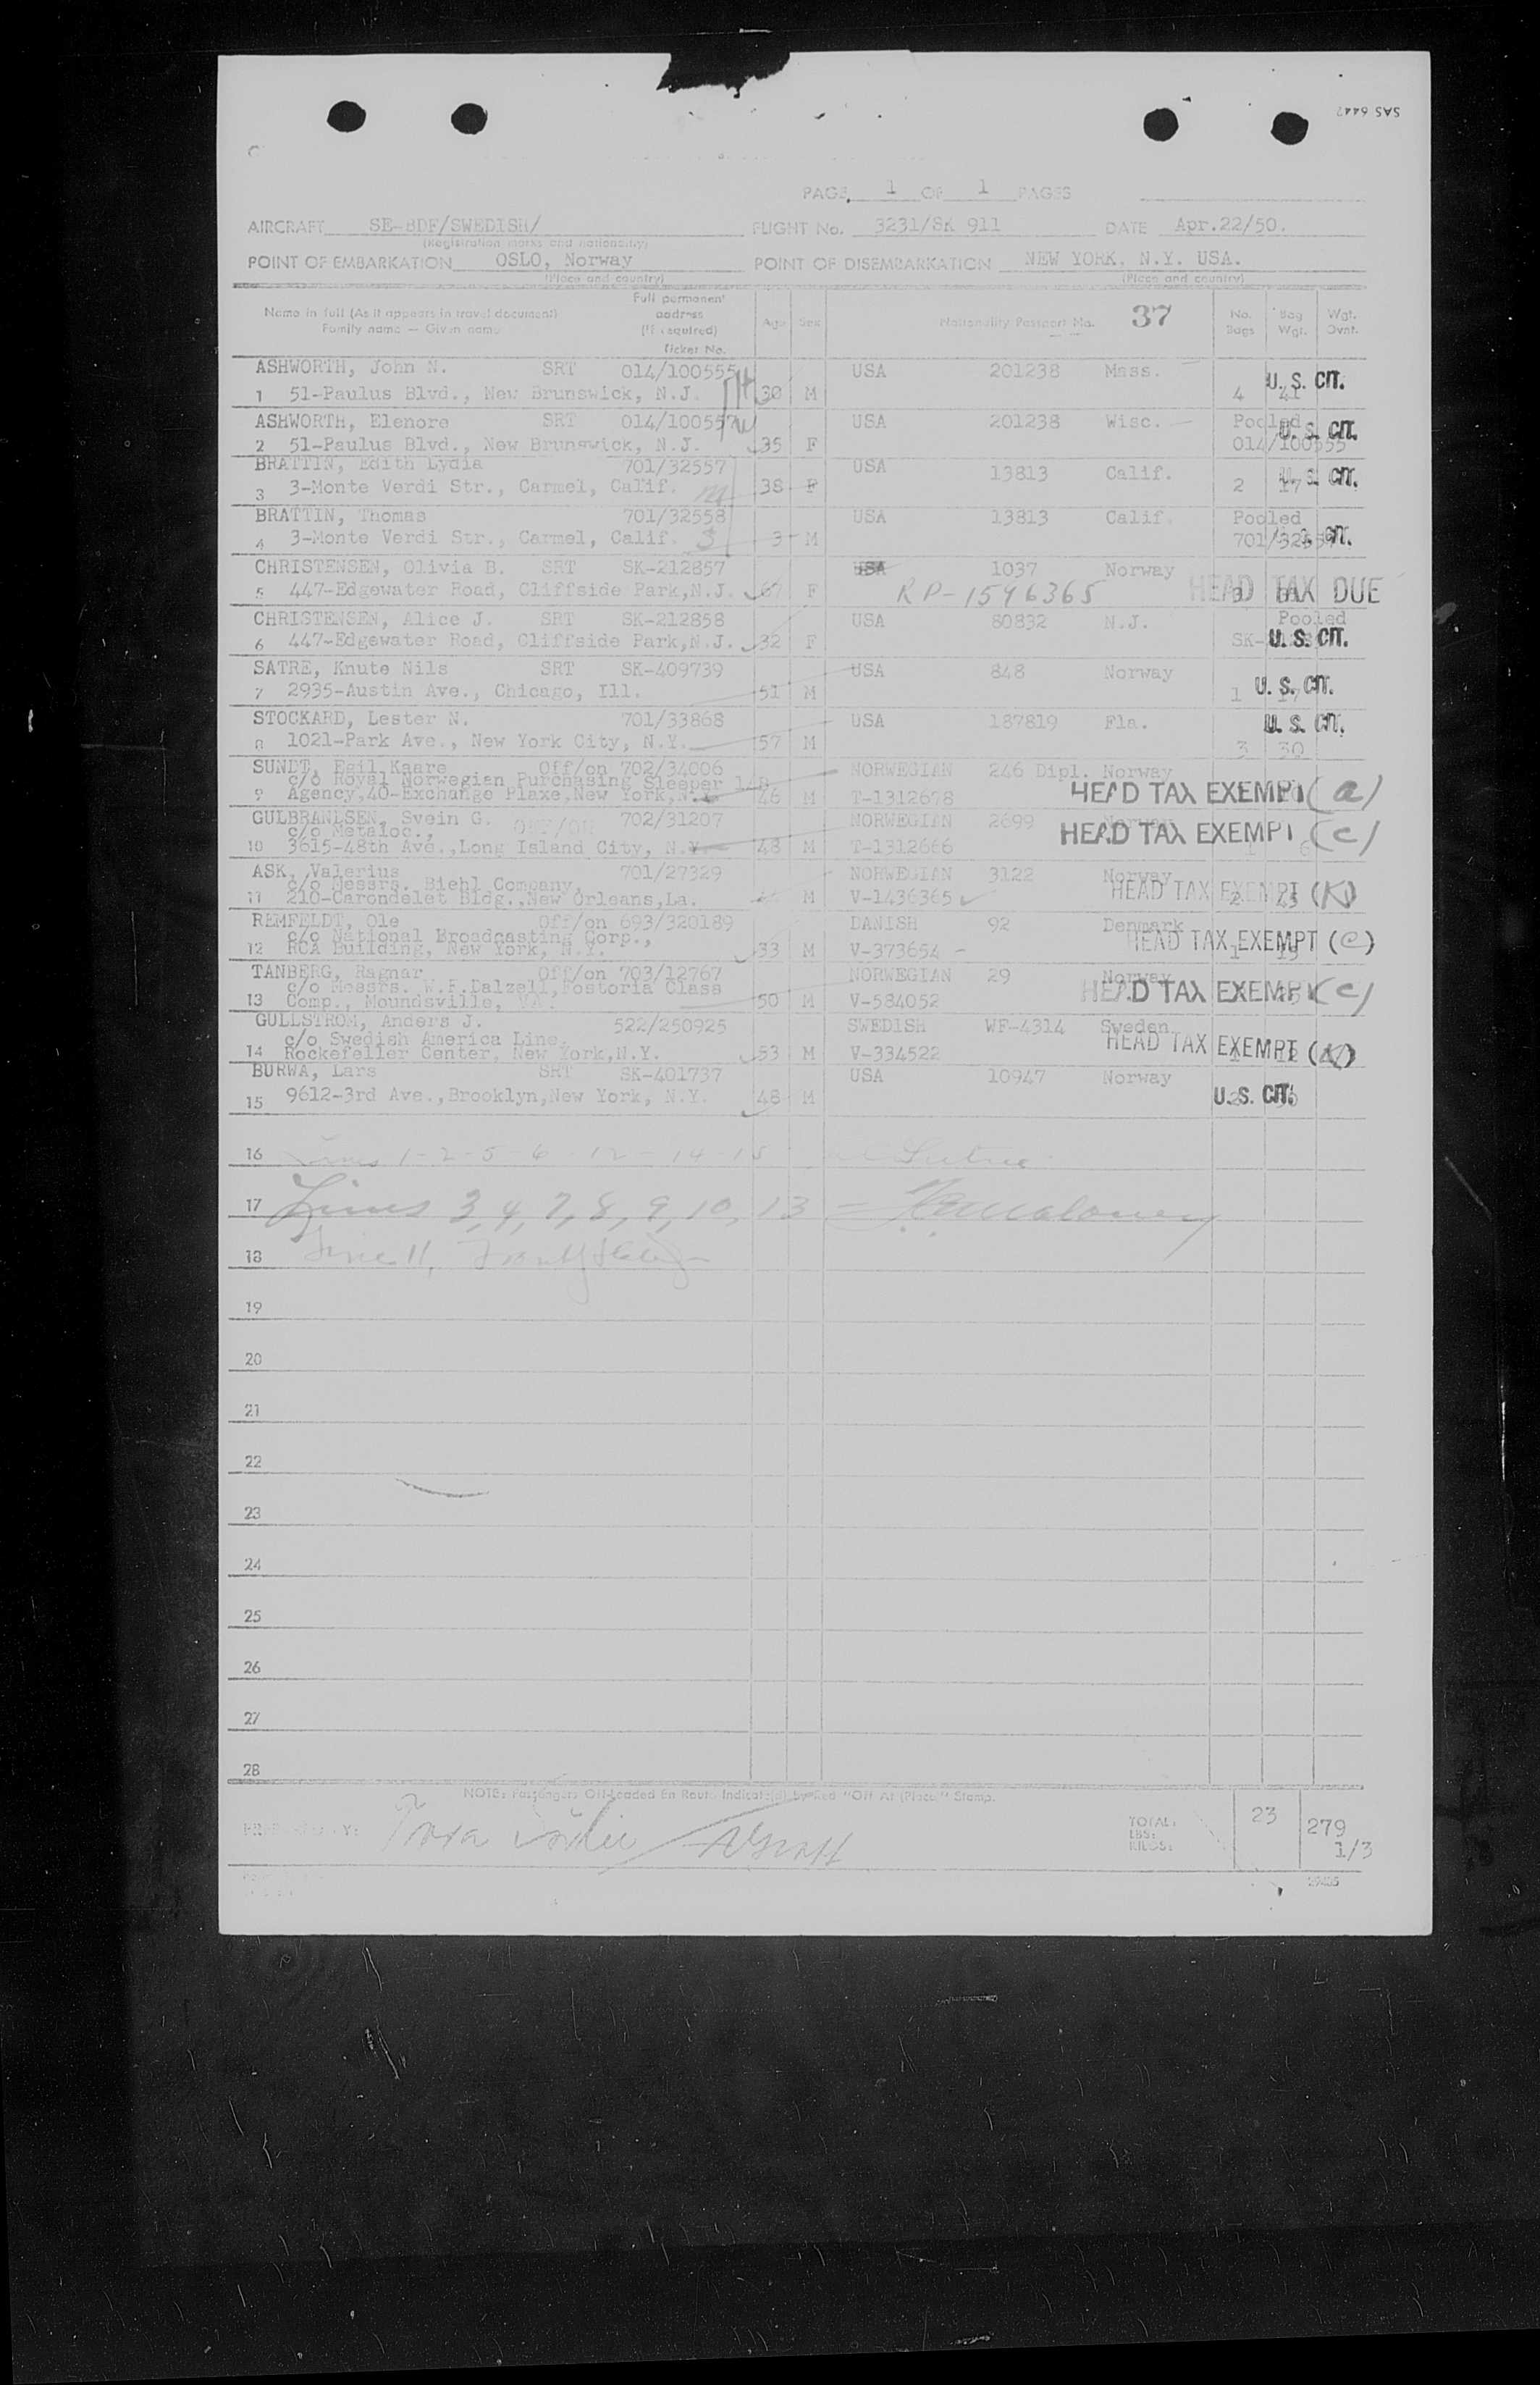 SAS 6447
PAGE 1 OF 1 PAGES
AIRCRAFT SE-BDF/SWEDISH/ FLIGHT No. 3231/SK 911 DATE Apr.22/50.
(Registration marks and nationality)
POINT OF EMBARKATION OSLO, Norway POINT OF DISEMBARKATION NEW YORK. N.Y. USA.
(Place and country) (Place and country)
Name in full (As it appears in travel document) Family name — Given name
Full permanent address (If required) Ticket No.
Age Sex Nationality Passport No. 37 No. Bags Bag Wgt. Wgt. Ovnt.
ASHWORTH, John N. SRT 014/100555 USA 201238 Mass.
1 51-Paulus Blvd., New Brunswick, N.J. 30 M 4 41 U.S. CIT.
ASHWORTH, Elenore SRT 014/100557 USA 201238 Wisc. Pooled U.S. CIT.
2 51-Paulus Blvd., New Brunswick, N.J. 35 F 014/100555
BRATTIN, Edith Lydia 701/32557 USA 13813 Calif. U.S. CIT.
3 3-Monte Verdi Str., Carmel, Calif. 38 F 2 17
BRATTIN, Thomas 701/32558 USA 13813 Calif. Pooled
4 3-Monte Verdi Str., Carmel, Calif. 3 M 701/32557 CIT.
CHRISTENSEN, Olivia B. SRT SK-212857 USA 1037 Norway
5 447-Edgewater Road, Cliffside Park,N.J. 67 F RP-1596365 HEAD TAX DUE
CHRISTENSEN, Alice J. SRT SK-212858 USA 80832 N.J. Pooled
6 447-Edgewater Road, Cliffside Park,N.J. 32 F SK- U.S. CIT.
SATRE, Knute Nils SRT SK-409739 USA 848 Norway
7 2935-Austin Ave., Chicago, Ill. 51 M 1 17 U.S. CIT.
STOCKARD, Lester N. 701/33868 USA 187819 Fla. U.S. CIT.
8 1021-Park Ave., New York City, N.Y. 57 M 3 30
SUNDT, Egil Kaare Off/on 702/34006 NORWEGIAN 246 Dipl. Norway
c/o Royal Norwegian Purchasing Sleeper
9 Agency,40-Exchange Plaxe,New York,N.Y. 46 M T-1312678 HEAD TAX EXEMPT (a)
GULBRANDSEN, Svein G. Off/on 702/31207 NORWEGIAN 2699 Norway
c/o Metaloc., HEAD TAX EXEMPT (c)
10 3615-48th Ave.,Long Island City, N.Y. 48 M T-1312666 1 6
ASK, Valerius 701/27329 NORWEGIAN 3122 Norway
c/o Messrs. Biehl Company,
11 210-Carondelet Bldg.,New Orleans,La. M V-1436365 HEAD TAX EXEMPT (K)
REMFELDT, Ole Off/on 693/320189 DANISH 92 Denmark
c/o National Broadcasting Corp.,
12 RCA Building, New York, N.Y. 33 M V-373654 HEAD TAX EXEMPT (c)
TANBERG, Ragnar Off/on 703/12767 NORWEGIAN 29 Norway
c/o Messrs. W.F.Dalzell,Fostoria Glass
13 Comp., Moundsville, VA. 50 M V-584052 HEAD TAX EXEMPT (c)
GULLSTROM, Anders J. 522/250925 SWEDISH WF-4314 Sweden
c/o Swedish America Line,
14 Rockefeller Center, New York,N.Y. 53 M V-334522 HEAD TAX EXEMPT (K)
BURWA, Lars SRT SK-401737 USA 10947 Norway
15 9612-3rd Ave.,Brooklyn,New York, N.Y. 48 M U.S. CIT.
16 Lines 1-2-5-6-12-14-15
17 Lines 3,4,7,8,9,10,13 =
18 Line 11,
19
20
21
22
23
24
25
26
27
28
NOTE: Passengers Off-Loaded En Route Indicat(ed) by Red "Off At (Place)" Stamp.
PREPARED BY:
TOTAL: 23 279
LBS:
KILOS: 1/3